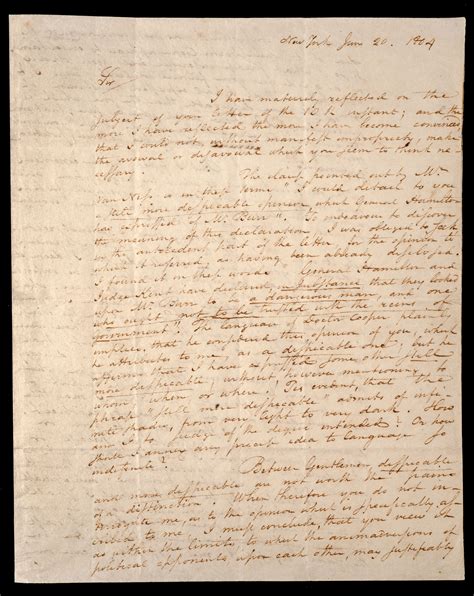 New York June 20. 1804
Sir
I have maturely reflected on the
subject of your letter of the 18th instant; and the
more I have reflected the more I have become convinced
that I could not, without manifest impropriety, make
the avowal or disavowal which you seem to think ne-
cessary.
The clause pointed out by Mr
Van Ness is in these terms "I could detail to you
a still more despicable opinion, which General Hamilton
has expressed of Mr. Burr". To endeavour to discover
the meaning of this declaration, I was obliged to seek
in the antecedent part of the letter, for the opinion to
which it referred, as having been already disclosed.
I found it in these words "General Hamilton and
Judge Kent have declared, in substance that they looked
upon Mr. Burr to be a dangerous man, and one
who ought not to be trusted with the reins of
government". The language of Doctor Cooper plainly
implies, that he considered this opinion of you, which
he attributes to me, as a despicable one; but he
affirms that I have expressed some other still
more despicable; without however mentioning to
whom when or where. 'Tis evident, that the
phrase "still more despicable" admits of infi-
nite shades, from very light to very dark. How
am I to judge of the degree intended? Or how
shall I annex any precise idea to language so
indefinite?
Between Gentlemen despicable
and more despicable are not worth the pains
of a distinction. When therefore you do not in-
terrogate me, as to the opinion which is specifically as-
cribed to me, I must conclude, that you view it
as within the limits to which the animadversions of
political opponents, upon each other, may justifiably